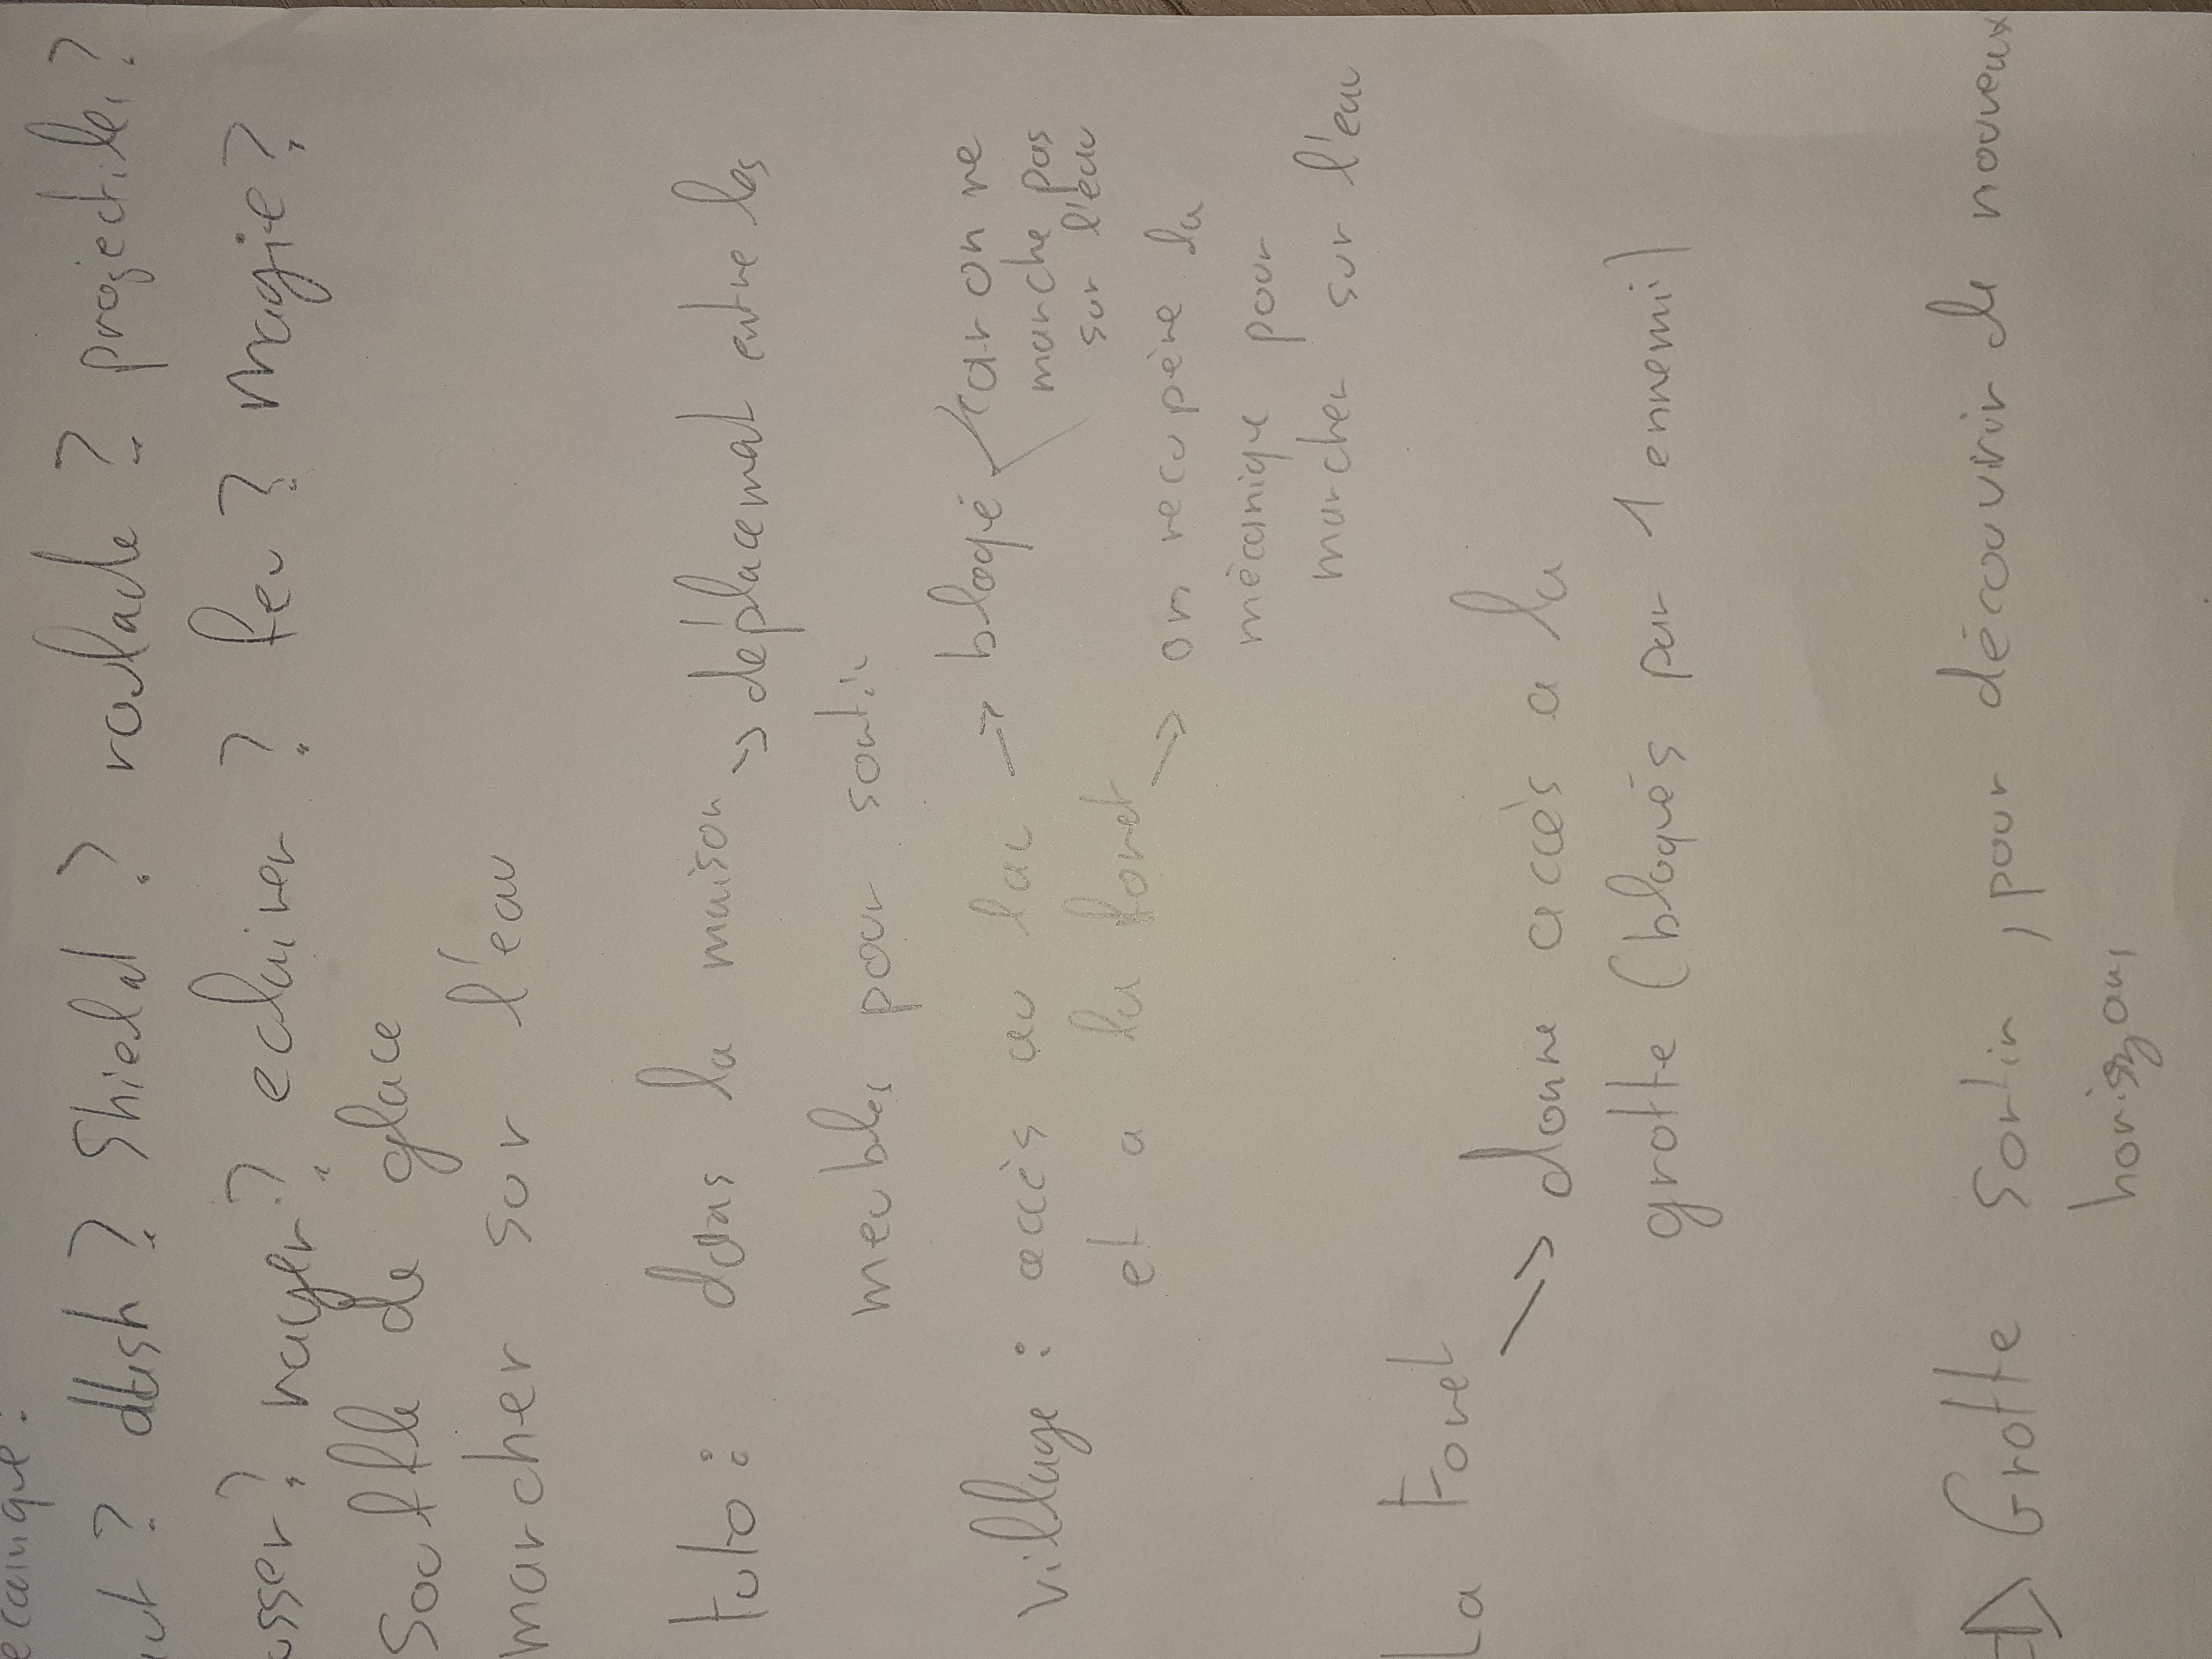 écanique :
ut ? dash ? Shield ? roulade ? projectiles ?
usser ? nager ? eclairer ? feu ? magie ?
Souffle de glace
marcher sur l'eau
tuto : dans la maison → déplacement entre les
meubles pour sortir
village : accès au lac → bloqué car on ne
marche pas
sur l'eau
et a la foret → on recupère la
mécanique pour
marcher sur l'eau
La Foret
→ donne accès a la
grotte (bloqués par 1 ennemi)
→ Grotte sortir, pour découvrir de nouveaux
horizons